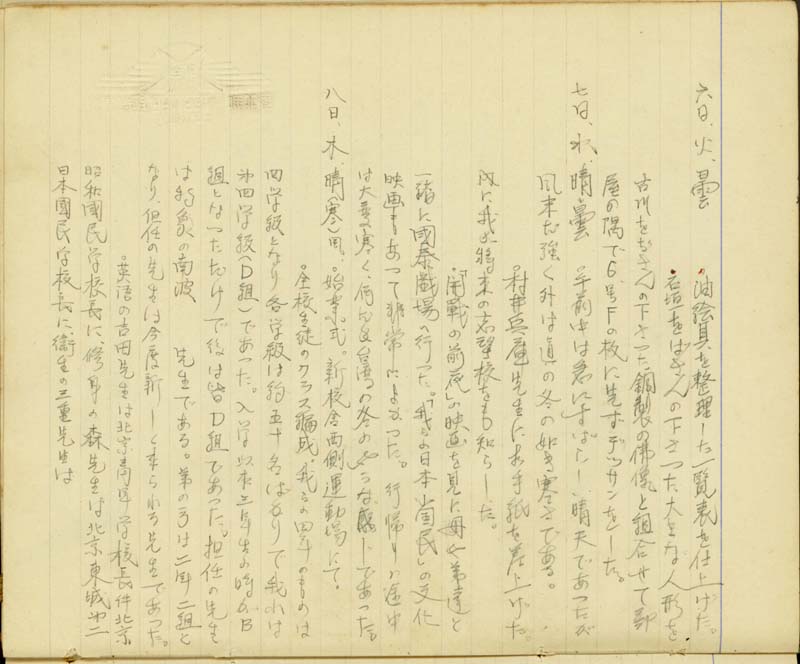 六日、火、曇 。油絵具を整理した一覧表を仕上げた。
。石垣をばさんの下さつた大きな人形を
古川をばさんの下さつた銅製の佛像と組合せて部
屋の隅で6号Fの板に先づデッサンをした。
七日、水、晴、曇 午前中は急にすばらしい晴天であつたが
風末だ強く外は真の冬の如き寒さである。
。村井兵庵先生にお手紙を差上げた。
次に我が将来の志望校をも知らした。
。「開戦の前夜」の映画を見に母や弟達と
一緒に國泰戯場へ行つた。「我らの日本皇民」の文化
映画もあつて非常によかつた。行帰りの途中
は大変寒く、何んだか台湾の冬のやうな感じであつた。
八日、木、晴(寒)風、。始業式。新校舎西側運動場にて。
。全校生徒のクラス編成。我らの四年のものは
四学級となり各学級は約五十名ばかりで我れは
第四学級(D組)であつた。入学以来二年生の時がB
組となつただけで後は皆D組であつた。担任の先生
は物象の南波 先生である。弟の方は二年二組と
なり、担任の先生は今度新しく来られる先生であつた。
。英語の吉田先生は北京青年学校長件北京
昭和國民学校長に、修身の森先生は北京東城第二
日本國民学校長に、衛生の三重先生は